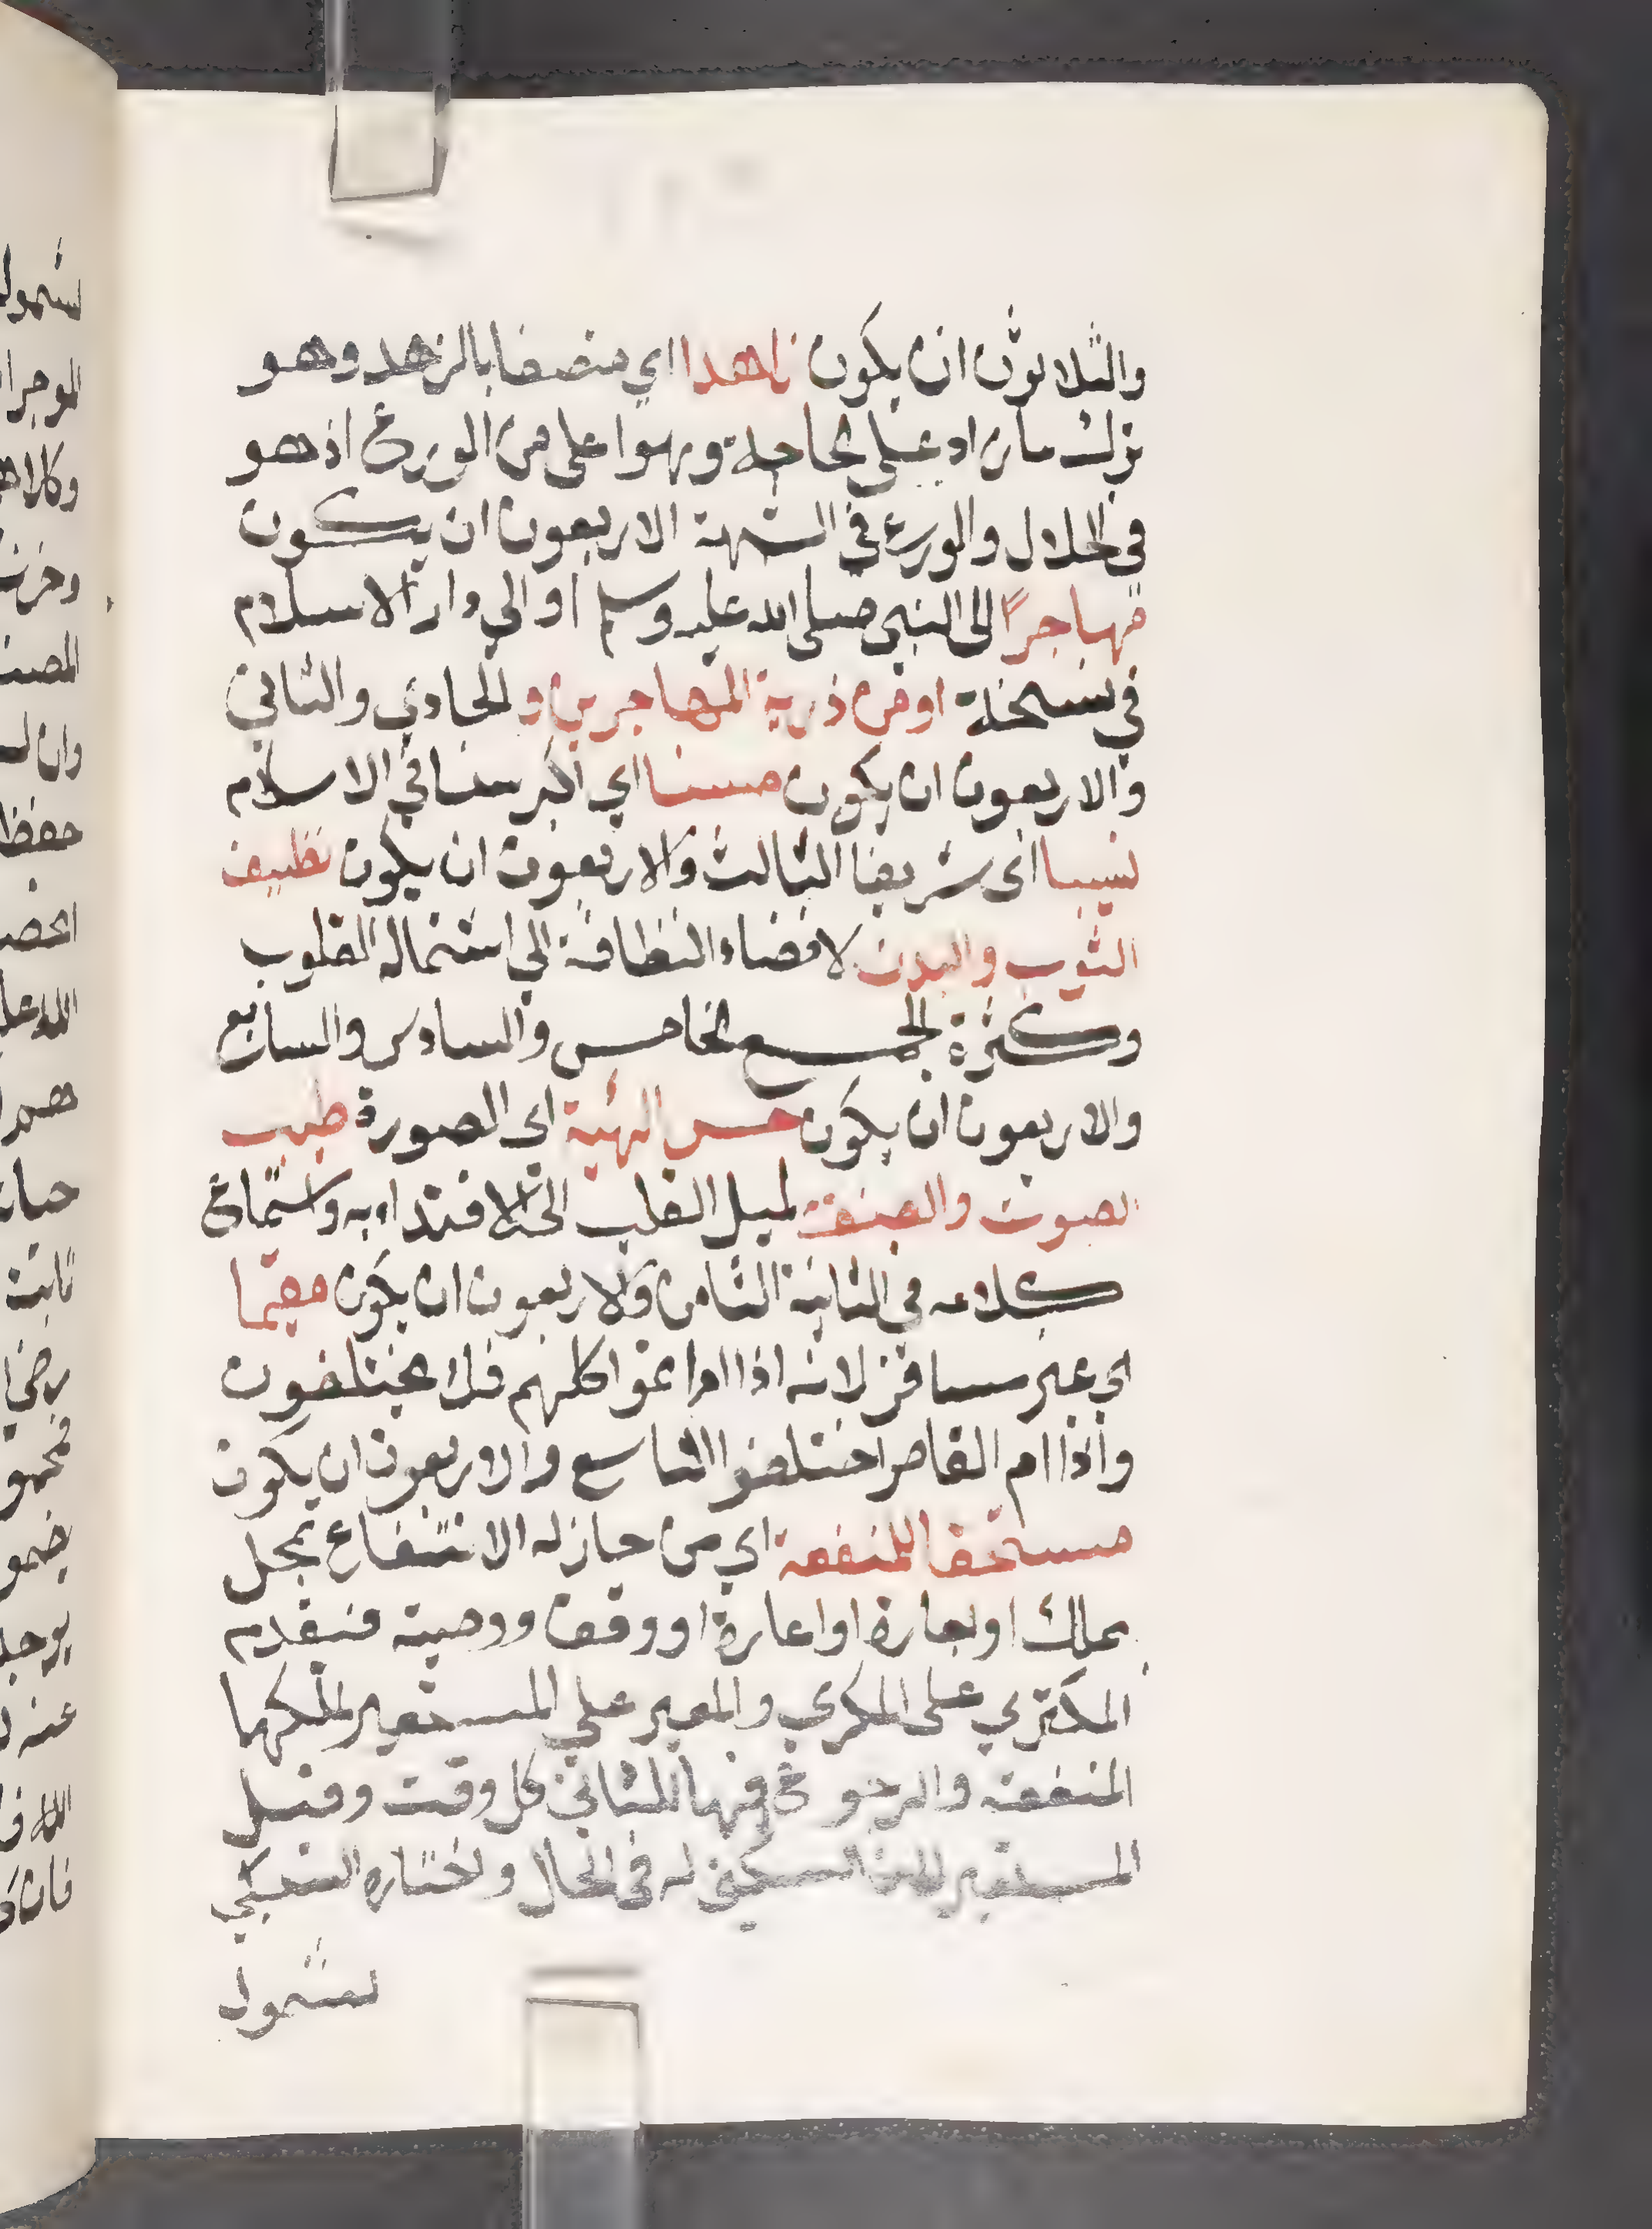 والثلاثون ان يكون زاهدا اي متصفا بالزهد وهو
ترك ما زاد على الحاجة وهوا على من الورع اذ هو
في الحلال والورع في الشبهة الاربعون ان يكون
مهاجرًا الى النبي صلى الله عليه وسلم او الي دار الاسلام
في نسخة او من ذرية المهاجرين و الحادي والثاني
والاربعون ان يكون مسنا اي اكبر سنا في الاسلام
نسيبا اى شريفا الثالث والاربعون ان يكون نظيف
الثوب والبدن لافضاء النظافة الي استمالة القلوب
وكثرة الجمع الخامس والسادس والسابع
والاربعون ان يكون حسن الهيئة اي الصورة طيب
الصوت والصنعة لميل القلب الى الاقتداء به واستماع
كلامه في الثانية الثامن والاربعون ان يكون مقيما
اي غير مسافر لانه اذا ام اتموا كلهم فلا يختلفون
واذا ام القاصر اختلفوا التاسع والاربعون ان يكون
مستحقا للمنفعة اي من جاز له الانتفاع بمحل
بملك او اجارة او اعارة او وقف ووصية فيقدم
المكتري على المكري والمعير علي المستعير لملكهما
المنفعة والرجوع فيها للثاني كل وقت وقيل
المستعير السكنى له في الحال واختاره السبكي
لشمول
شمول
الموجر
وكلاهما
المصنف
وان لـ
حفظا
الله عليـ
ثابتة
رضي ا
عنه
الله